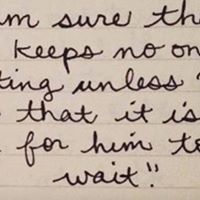 am sure th
keeps no on
ting unless
that it is
for him to
wait".